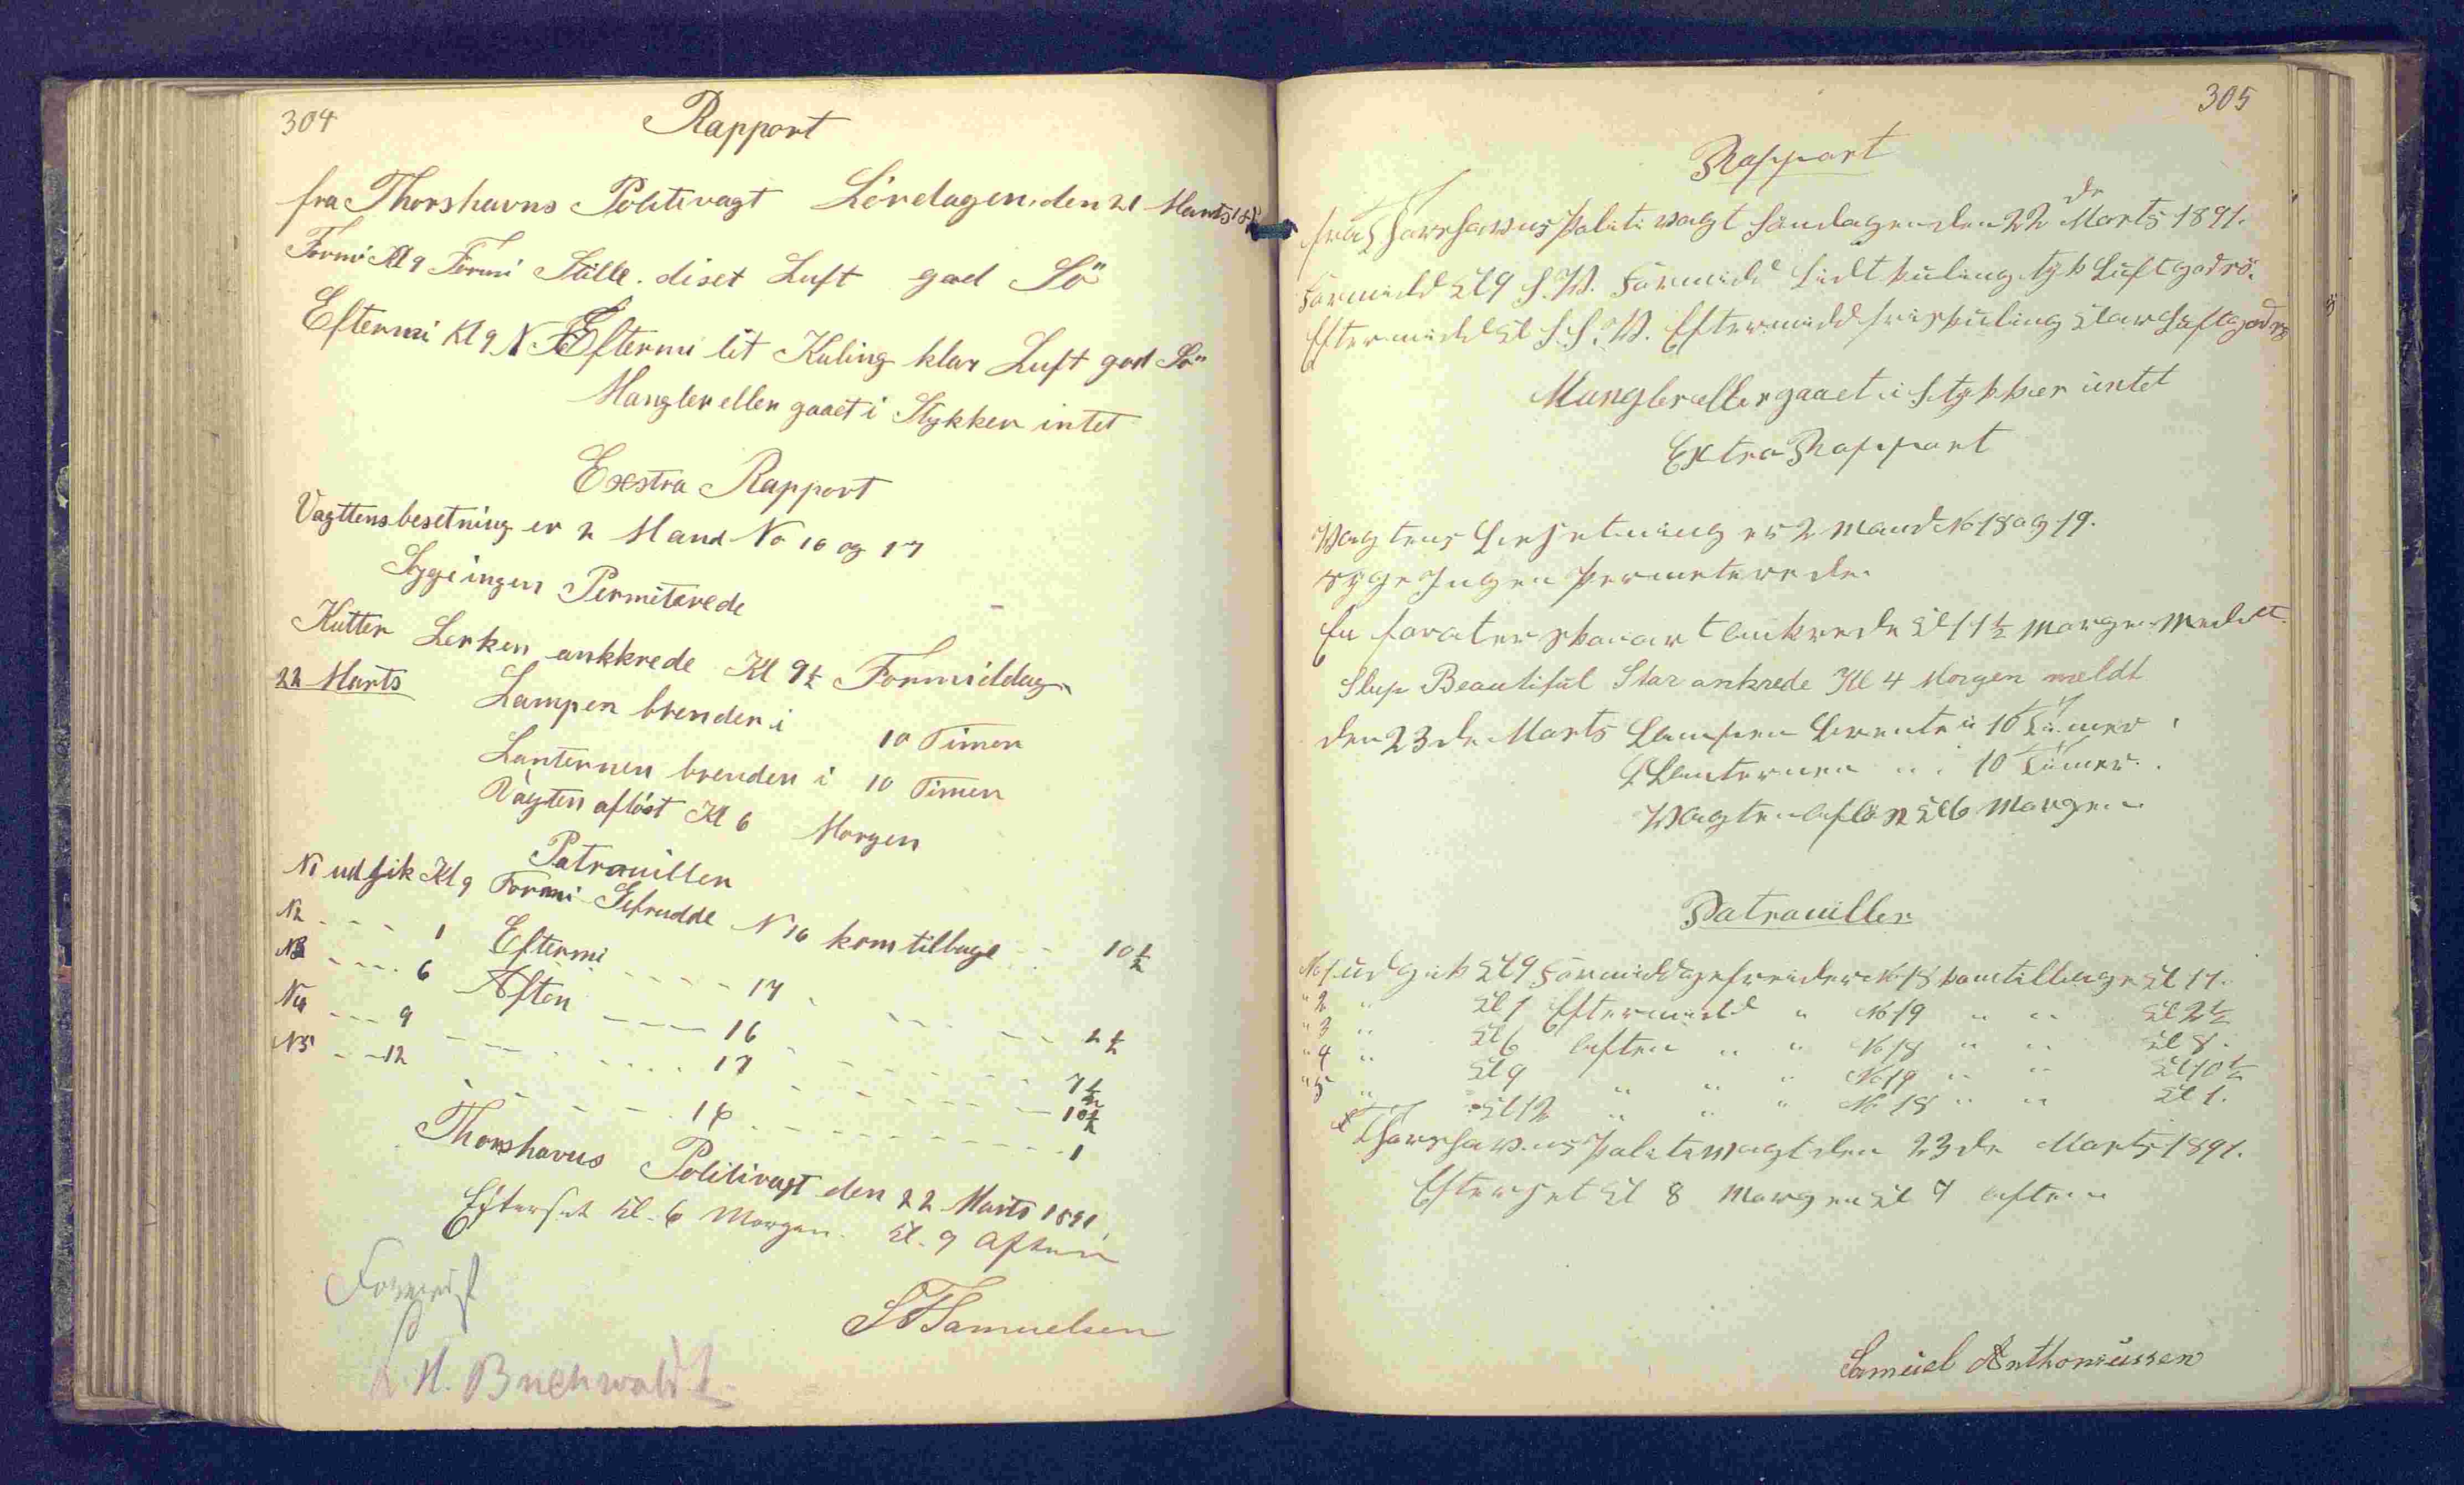 304
Rapport
fra Thorshavns Politivagt Lördagen den 21 Marts 18
Formi Kl 9 Formi Stille. diset Luft god Sö
Eftermi Kl 9 N Eftermi lit Kuling klar Luft god Sö
Mangler eller gaaet i Stykker intet
Exstra Rapport
Vagttens besetning er 2 Mand No 16 og 17
Syge ingen Permiterede
Kutter Lerken ankkrede Kl 9½ Formiddag
22 Marts Lampen brender i 10 Timer
Lanternen brender i 10 Timer
Vagten aflöst Kl 6 Morgen
Patrouiller
N1 udgik Kl 9 Formi Gefrudde N 16 kom tilbage 10½
N2 - - - 1 Eftermi - - - - 17 - - - - 2½
N3 - - - 6 Aften - - - 16 - - - - 7½
N4 - - - 9 - - - - 17 - - - - 10½
N5 - - 12 - - - - 16 - - - - 1
Thorshavns Politivagt den 22 Marts 1891
Efterset Kl. 6 Morgen. Kl. 9 Aften
S Samuelsen
Buchwaldt
305
Rapport
fra Thorshavns Politivagt Söndagen den 22 de Marts 1891.
Formidd Kl 9 S.W. Formidd Lidt kuling tyk Luft god sö.
Eftermidd Kl S.S.W. Eftermidd frisk kuling klar Luft god sö
Mangler eller gaaet i Stykker intet
Extra Rapport
Vagtens Besetning er 2 Mand No 18 og 19.
syge Ingen permeterede.
En ankrede Kl 11½ Morgen Meldt.
Slup Beautiful Star ankrede Kl 4 Morgen meldt
den 23 de Marts Lampen brente i 10 Timer
Lanternen " i 10 Timer.
Vagten aflöst Kl 6 Morgen
Patrouiller
No 1 udgik Kl 9 Formidd gefreider No 18 kom tilbage Kl 11.
" 2 " Kl 1 Eftermidd " No 19 " " Kl 2½
" 3 " Kl 6 Aften " " No 18 " " Kl 8.
" 4 " Kl 9 " " " No 19 " " Kl 10½
" 5 " Kl 12 " " " No 18 " " Kl 1.
Thorshavns Politivagt den 23 de Marts 1891.
Efterset Kl 8 Morgen Kl 7 Aften
Samuel Anthoniussen